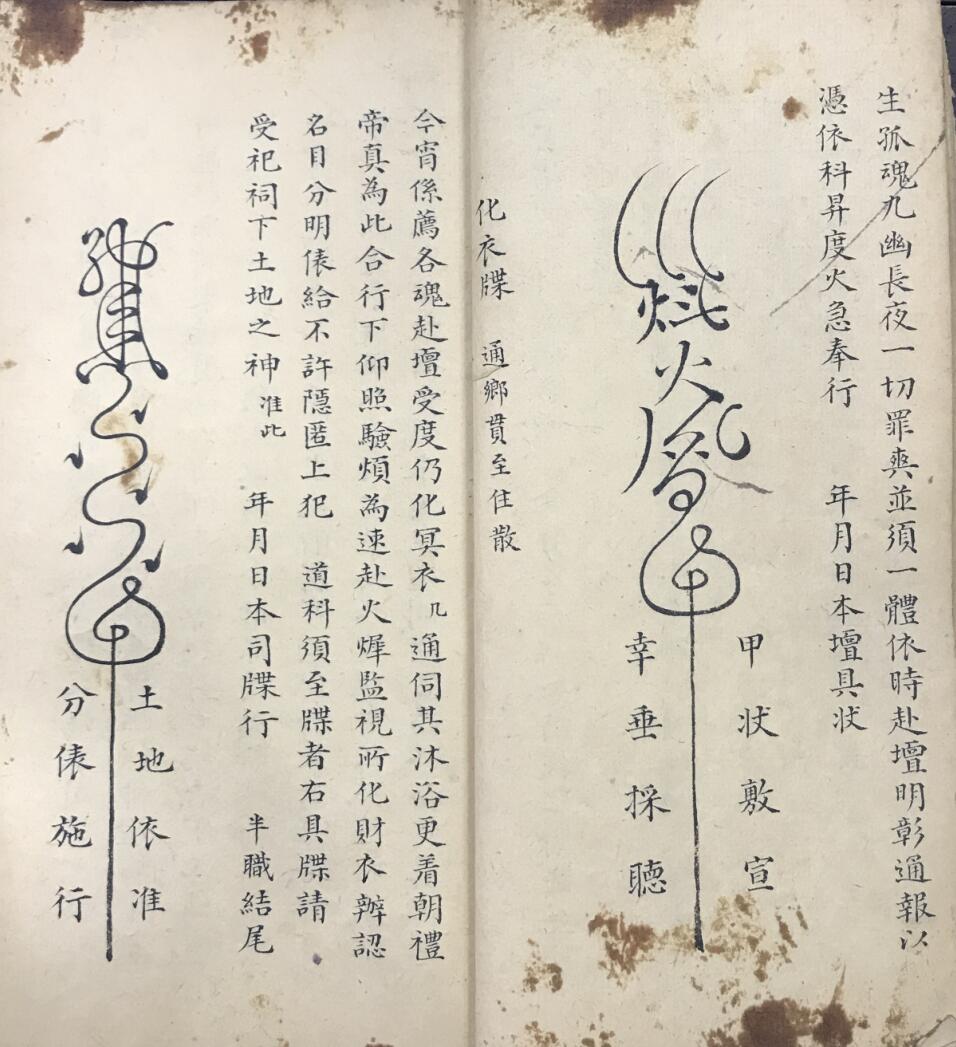 生孤魂九幽長夜一切罪爽並須一體依時赴壇明彰通報以
憑依科昇度火急奉行　年月日本壇具状
甲状敷宣
幸垂採聽
化衣牒　通鄉貫至住散
今宵係薦各魂赴壇受度仍化冥衣几通伺其沐浴更着朝禮
帝真為此合行下仰照驗煩為速赴火墀監視所化財衣辨認
名目分明俵給不許隱匿上犯　道科須至牒者右具牒請
受祀祠下土地之神　准此　年月日本司牒行　半職結尾
土地依准
分俵施行